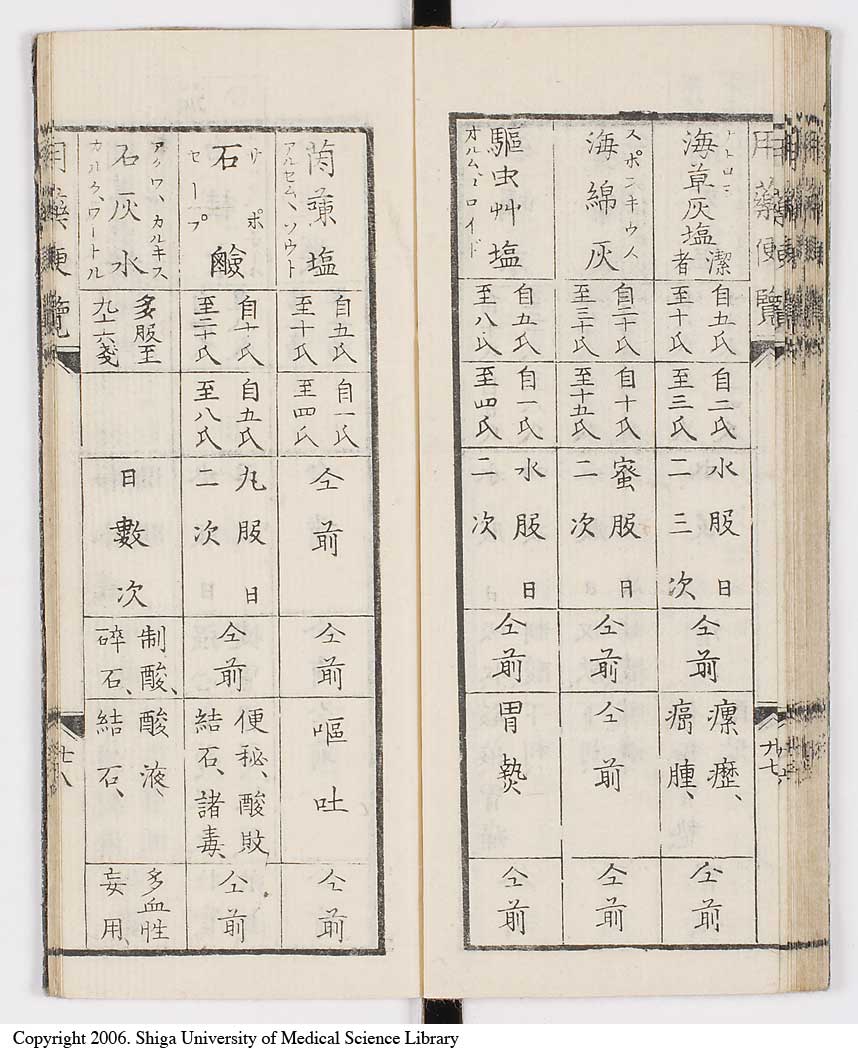 用藥便覽
海草灰塩 潔者
自五氏
至十氏
自二氏
至三氏
水服日
二三次
仝前
瘰癧、
癌腫、
仝前
スポンキウス
海綿灰
自二十氏
至三十氏
自十氏
至十五氏
蜜服日
二次
仝前
仝前
仝前
オルム、コロイド
驅虫艸塩
自五氏
至八氏
自一氏
至四氏
水服日
二次
仝前
胃熱
仝前
アルセム、ソウト
塩
自五氏
至十氏
自一氏
至四氏
仝前
仝前
嘔吐
仝前
サポ
石鹼
セープ
自十氏
至二十氏
自五氏
至八氏
丸服日
二次
仝前
便秘、酸敗
結石、諸毒、
仝前
アクワ、カルキス
石灰水
カルク、ワートル
多服至
九十六戔
日數次
制酸、
碎石、
酸液、
結石、
多血性
妄用、
用藥便覽
七八
Copyright 2006. Shiga University of Medical Science Library